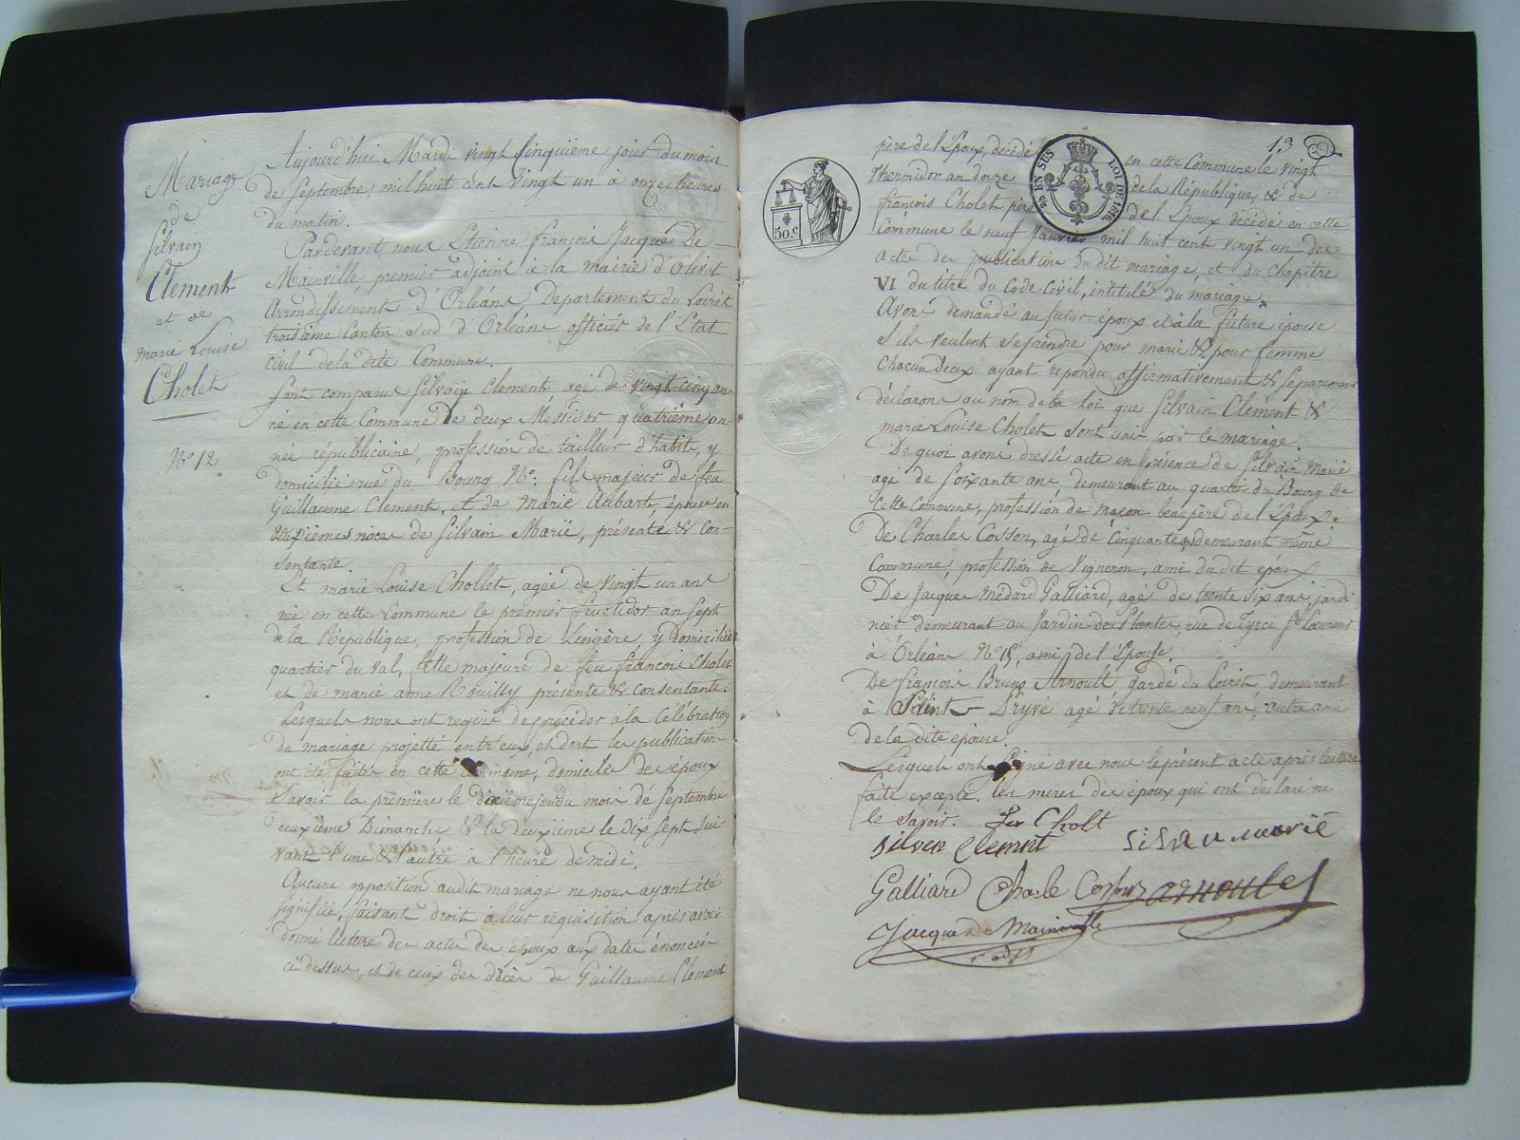 Mariage
de
Silvain
Clement
et de
Marie Louise
Cholet
No 12
Aujourd'hui Mardi vingt cinquième jour du mois
de Septembre mil huit cent vingt un à onze heures
du matin.
Pardevant nous Etienne françois Jacque De
Mainville, premier adjoint à la mairie d'Olivet
arrondissement d'Orléans, Departement du Loiret
troisième Canton sud d'Orléans officier de l'Etat
civil de la dite Commune.
Sont comparus Silvain Clement agé de vingt cinq ans
né en cette Commune De deux Messidor quatrième an
née républicaine, profession de tailleur d'habits, y
domicilié rue du Bourg No: fils majeur de feu
Guillaume Clement, et de Marie Aubart, épouse en
noces de Silvain Marié, présente & con-
sentante.
Et marie Louise Chollet, agée de vingt un ans
née en cette Commune le premier fructidor an sept
de la République, profession de Lingère, y Domiciliée
quartier du Val, fille majeure de feu françois Cholet
et de marie anne Rouilly présente & consentante.
Lesquels nous ont requis de procéder à la Célébration
du mariage projetté entr'eux, et dont les publications
ont été faites en cette commune, domicile des époux
Savoir la première le du mois de Septembre
deuxième Dimanche & la deuxième le dix sept sui
vant l'une & l'autre à l'heure de midi.
Aucune opposition audit mariage ne nous ayant été
signifiée, faisant droit à leur réquisition après avoir
donné lecture des actes des époux aux dates énoncées
ci dessus, et de ceux des décès de Guillaume Clement
13
père de l'Epoux, décédé en cette Commune le vingt
thermidor an douze de la République, & de
françois Cholet père de l'Epoux décédé en cette
Commune le neuf Janvier mil huit cent vingt un des
actes de publication du dit mariage, et du Chapitre
VI du titre du Code Civil, intitulé du mariage.
Avons demandé au futur époux et à la future épouse
S'ils veulent se prendre pour mari & pour femme
Chacun Deux ayant répondu affirmativement & séparément
déclarons au nom de la loi que Silvain Clement &
marie Louise Cholet sont unis par le mariage.
De quoi avons dressé acte en présence de Silvain Marié
agé de soixante ans demeurant au quartier du Bourg de
cette Commune, profession de maçon beaupère de l'Epoux.
De Charles Cosson, agé de Cinquante, demeurant même
Commune, profession de Vigneron, ami du dit époux
De Jacque Medard Galliard, agé de trente six ans, jardi
nier demeurant au Jardin des Plantes, rue de St Laurent
à Orléans No 15, ami de l'Epouse.
De françois Bruno Arnoult garde du Loiret demeurant
à Saint Dryve agé de trente neuf ans, autre ami
de la dite épouse.
Lesquels ont signé avec nous le présent acte après lecture
faite excepté les meres des époux qui ont déclaré ne
le savoir. Cholt
silven Clement silvin marié
Galliard Charle Cosson arnoult
Jacque de Mainville
adjt
50.c
EN SUS
LOI DE 1816